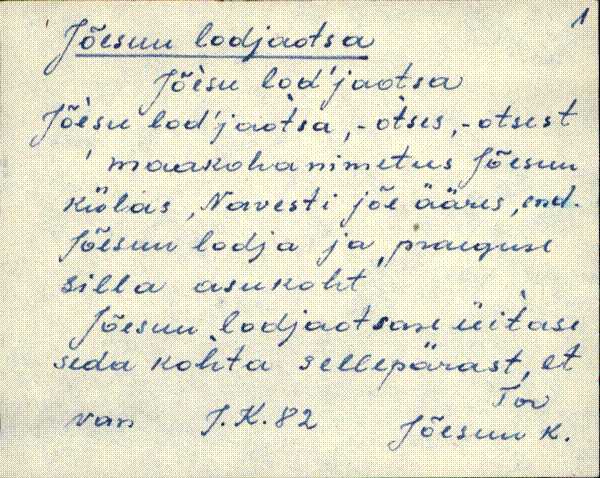 1
Jõesuu lodjaotsa
Jõèsu lod'jaotsa
Jõèsu lod'jaòtsa, -òtses, -otsest
' maakohanimetus Jõesuu
külas, Navesti jõe ääres, end.
Jõesuu lodja ja praeguse
silla asukoht'
Jõesuu lodjaotsase üitase
seda kohta sellepärast, et
Tor
van J.K. 82 Jõesuu k.